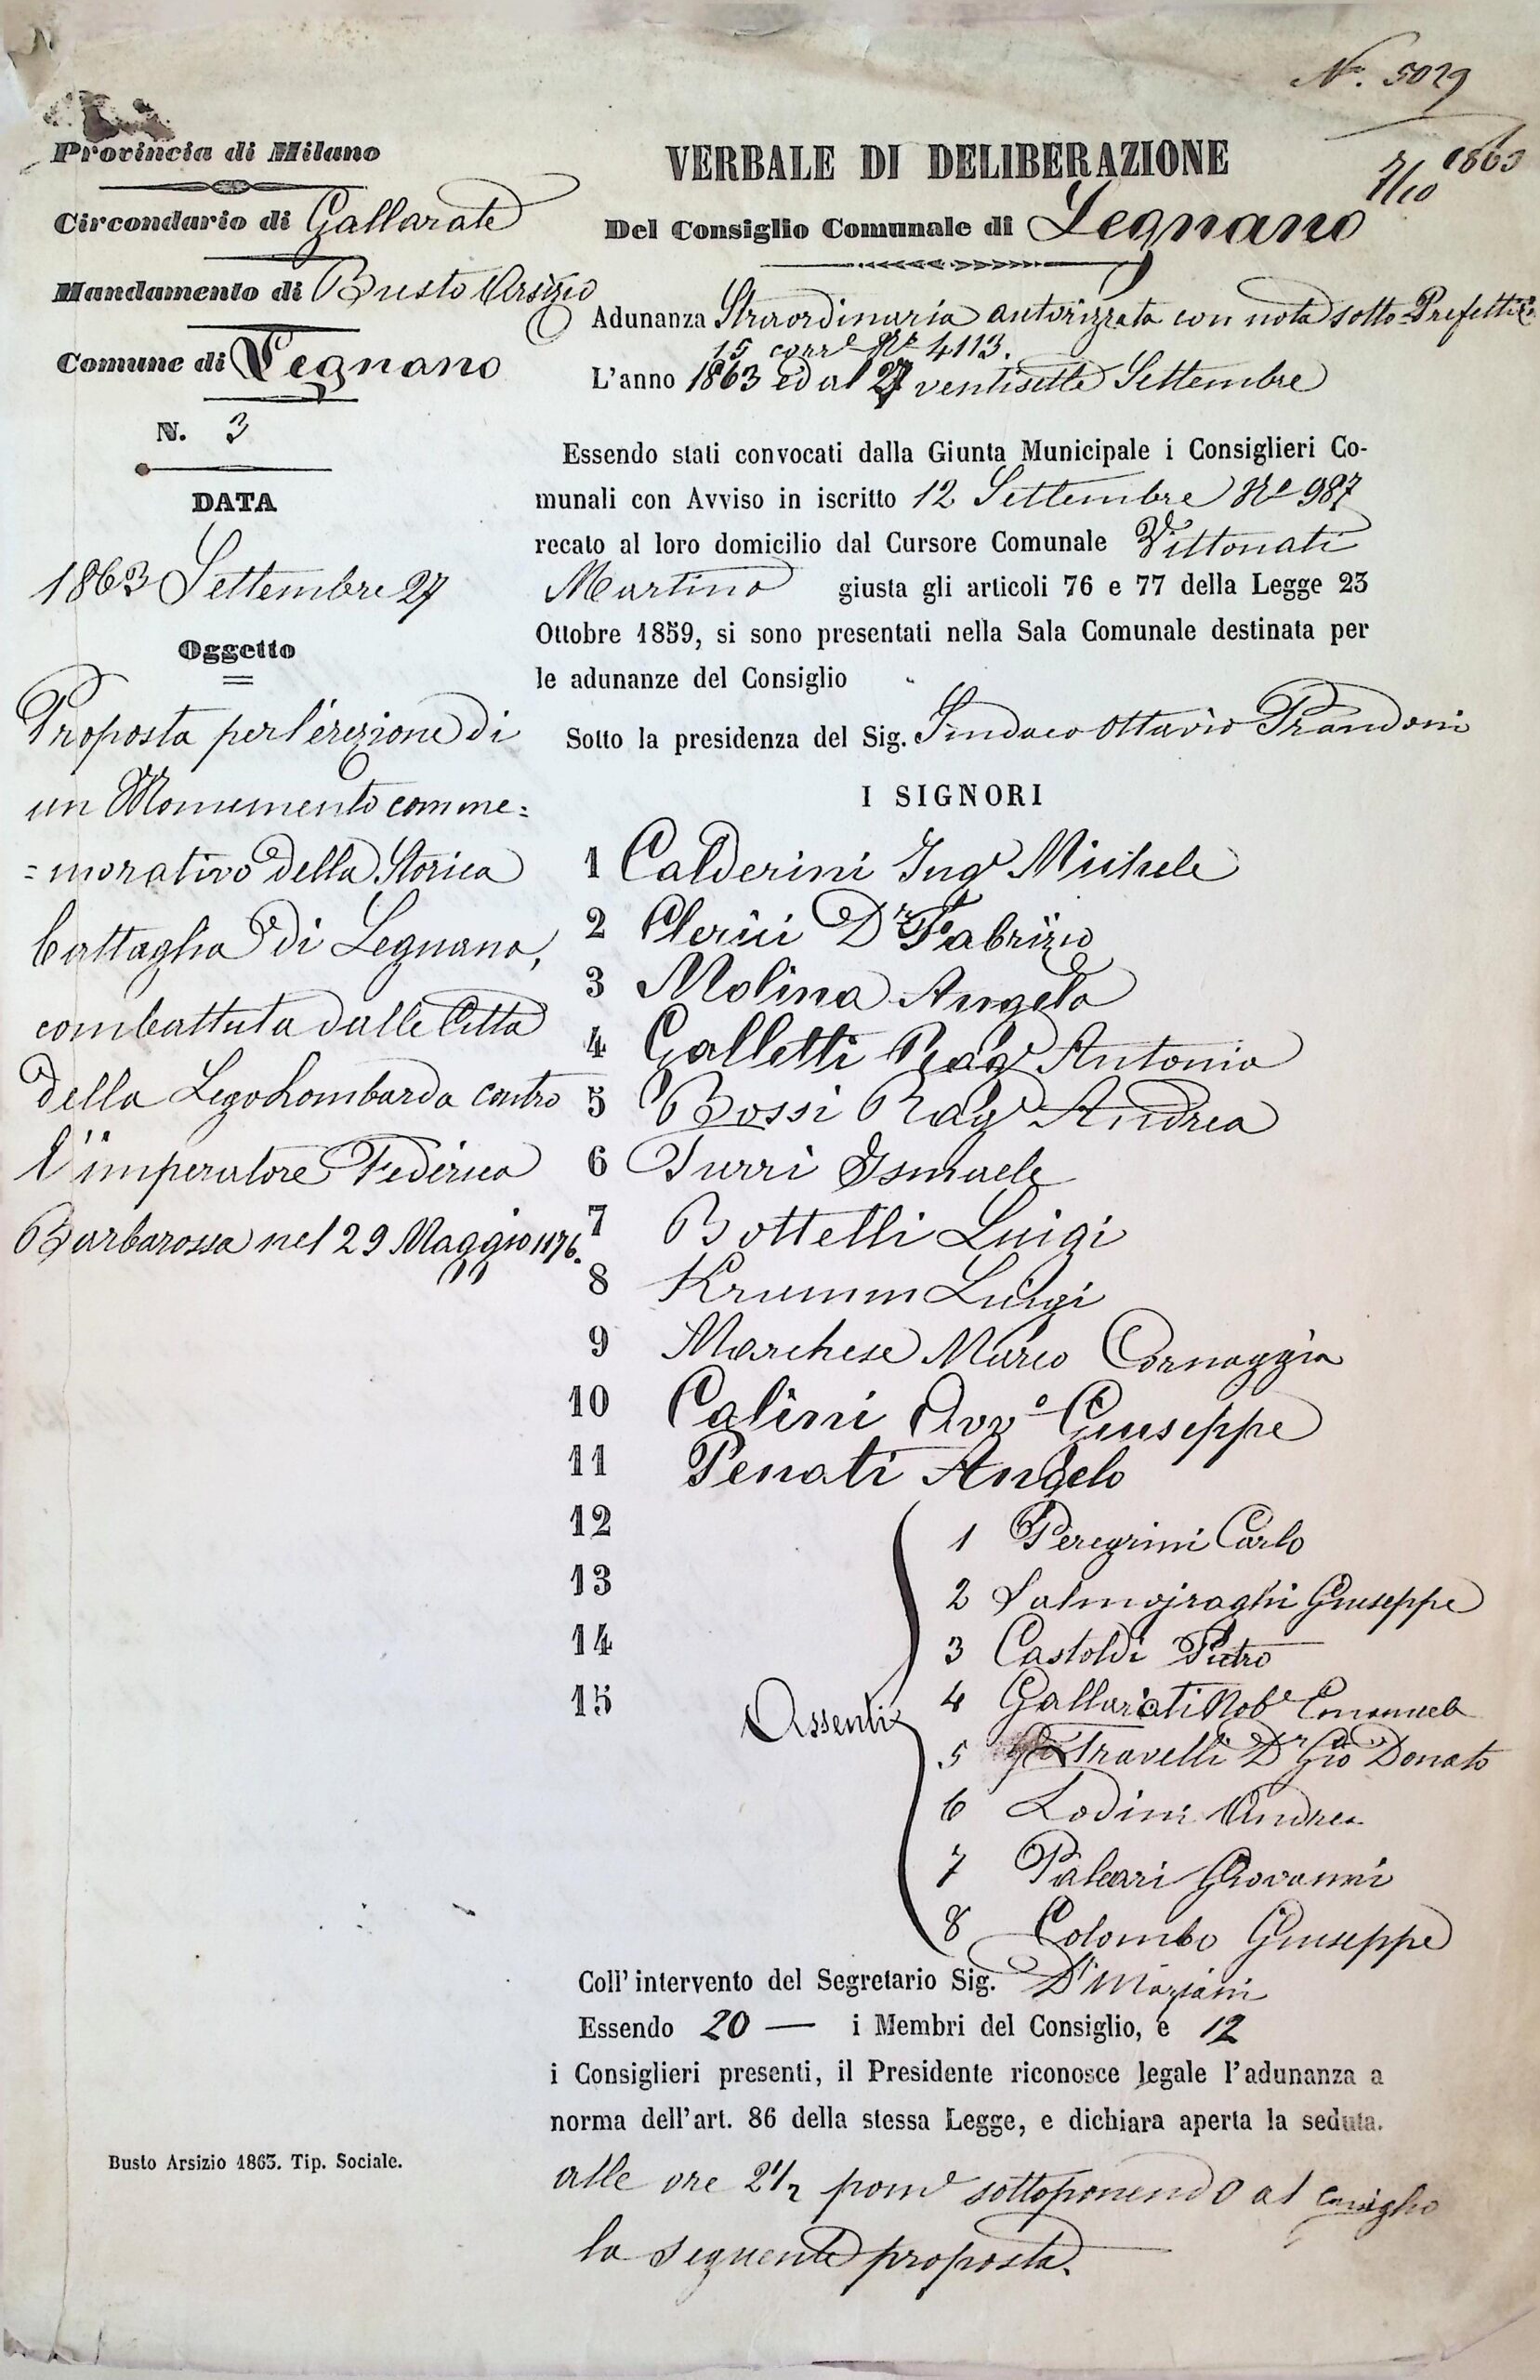 N.º 5029
7/10 1863
Provincia di Milano
Circondario di Gallarate
Mandamento di Busto Arsizio
Comune di Legnano
N. 3
DATA
1863 Settembre 27
Oggetto
Proposta per l'erezione di
un Monumento comme=
=morativo della Storica
battaglia di Legnano,
combattuta dalle Città
della Lega Lombarda contro
l'imperatore Federico
Barbarossa nel 29 Maggio 1176.
Busto Arsizio 1863. Tip. Sociale.
VERBALE DI DELIBERAZIONE
Del Consiglio Comunale di Legnano
Adunanza Straordinaria autorizzata con nota sotto-Prefettizia
15 corre Nº 4113.
L'anno 1863 ed al 27 ventisette Settembre
Essendo stati convocati dalla Giunta Municipale i Consiglieri Co-
munali con Avviso in iscritto 12 Settembre Nº 987
recato al loro domicilio dal Cursore Comunale Vittonati
Martino giusta gli articoli 76 e 77 della Legge 23
Ottobre 1859, si sono presentati nella Sala Comunale destinata per
le adunanze del Consiglio
Sotto la presidenza del Sig. Sindaco Ottavio Prandoni
I SIGNORI
1 Calderini Ingr Michele
2 Clerici Dr Fabrizio
3 Molina Angelo
4 Galletti Ragr Antonio
5 Bossi Ragr Andrea
6 Turri Ismaele
7 Bottelli Luigi
8 Krumm Luigi
9 Marchese Marco Cornaggia
10 Calini Avvo Giuseppe
11 Penati Angelo
12
13
14
15
Assenti
1 Peregrini Carlo
2 Salmojraghi Giuseppe
3 Castoldi Pietro
4 Gallarati Nobe Emanuele
5 Travelli Dr Gio Donato
6 Lodini Andrea
7 Paleari Giovanni
8 Colombo Giuseppe
Coll' intervento del Segretario Sig. Dr Maziani
Essendo 20 — i Membri del Consiglio, e 12
i Consiglieri presenti, il Presidente riconosce legale l'adunanza a
norma dell'art. 86 della stessa Legge, e dichiara aperta la seduta.
alle ore 2 1/2 pome sottoponendo al consiglio
la seguente proposta.